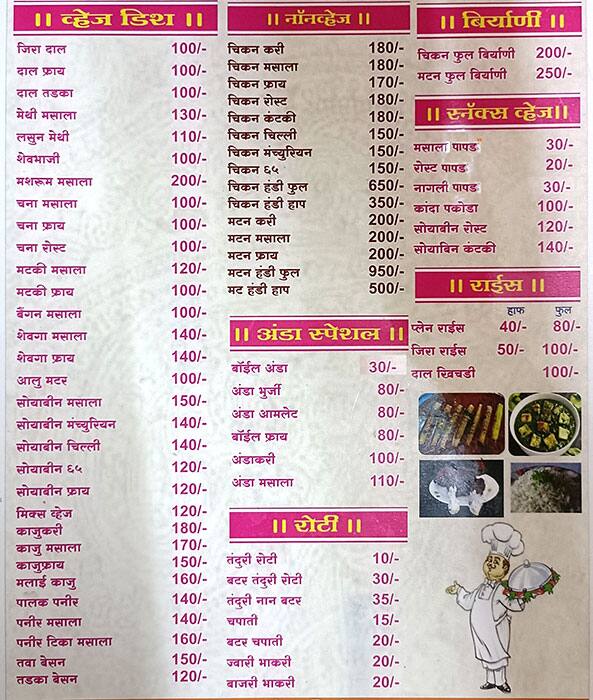 || व्हेज डिश ||
जिरा दाल 100/-
दाल फ्राय 100/-
दाल तडका 100/-
मेथी मसाला 130/-
लसुन मेथी 110/-
शेवभाजी 100/-
मशरूम मसाला 200/-
चना मसाला 100/-
चना फ्राय 100/-
चना रोस्ट 100/-
मटकी मसाला 120/-
मटकी फ्राय 100/-
बैंगन मसाला 100/-
शेवगा मसाला 140/-
शेवगा फ्राय 140/-
आलु मटर 100/-
सोयाबीन मसाला 150/-
सोयाबीन मंच्युरियन 140/-
सोयाबीन चिल्ली 140/-
सोयाबीन ६५ 120/-
सोयाबीन फ्राय 120/-
मिक्स व्हेज 120/-
काजुकरी 180/-
काजु मसाला 170/-
काजुफ्राय 150/-
मलाई काजु 160/-
पालक पनीर 140/-
पनीर मसाला 140/-
पनीर टिका मसाला 160/-
तवा बेसन 150/-
तडका बेसन 120/-
|| नॉनव्हेज ||
चिकन करी 180/-
चिकन मसाला 180/-
चिकन फ्राय 170/-
चिकन रोस्ट 180/-
चिकन कंटकी 180/-
चिकन चिल्ली 150/-
चिकन मंच्युरियन 150/-
चिकन ६५ 150/-
चिकन हंडी फुल 650/-
चिकन हंडी हाप 350/-
मटन करी 200/-
मटन मसाला 200/-
मटन फ्राय 200/-
मटन हंडी फुल 950/-
मट हंडी हाप 500/-
|| अंडा स्पेशल ||
बॉईल अंडा 30/-
अंडा भुर्जी 80/-
अंडा आमलेट 80/-
बॉईल फ्राय 80/-
अंडाकरी 100/-
अंडा मसाला 110/-
|| रोटी ||
तंदुरी रोटी 10/-
बटर तंदुरी रोटी 30/-
तंदुरी नान बटर 35/-
चपाती 15/-
बटर चपाती 20/-
ज्वारी भाकरी 20/-
बाजरी भाकरी 20/-
|| बिर्याणी ||
चिकन फुल बिर्याणी 200/-
मटन फुल बिर्याणी 250/-
|| स्नॅक्स व्हेज ||
मसाला पापड 30/-
रोस्ट पापड 20/-
नागली पापड 30/-
कांदा पकोडा 100/-
सोयाबीन रोस्ट 120/-
सोयाबिन कंटकी 140/-
|| राईस ||
हाफ फुल
प्लेन राईस 40/- 80/-
जिरा राईस 50/- 100/-
दाल खिचडी 100/-